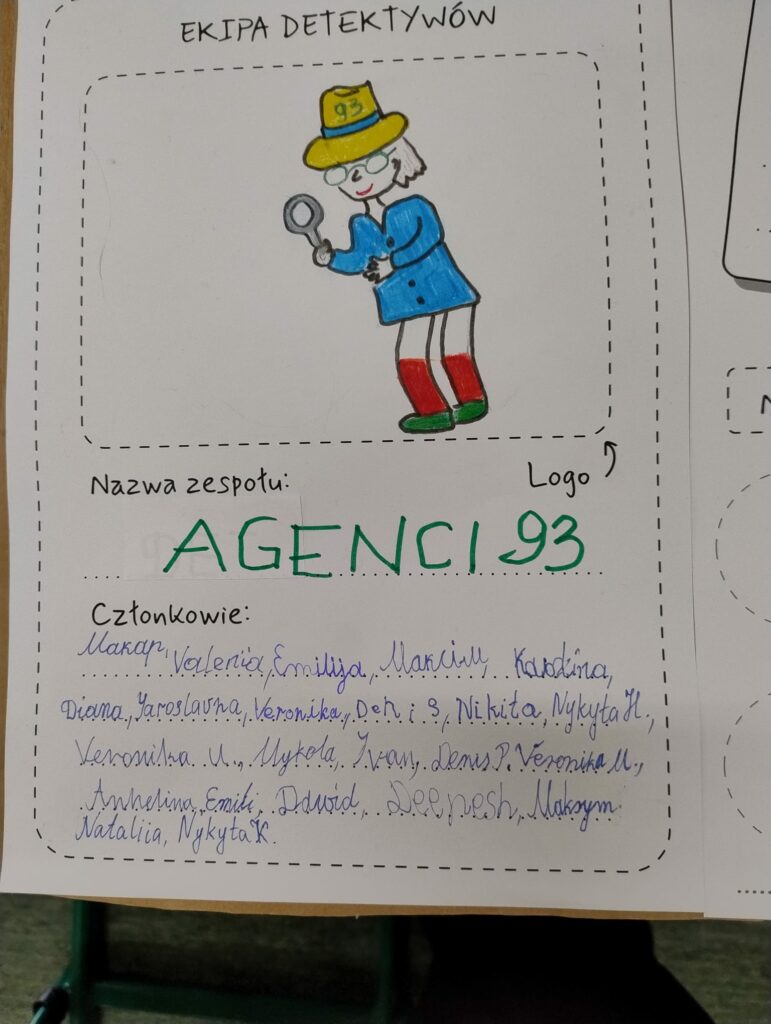 EKIPA DETEKTYWÓW
93
Nazwa zespołu:
Logo
AGENCI 93
Członkowie:
Макар, Valeriia, Emilija, Максім, Karolina,
Diana, Yaroslavna, Veronika, Денis, Nikita, Nykyta H.,
Veronika U., Mykola, Ivan, Denis P. Veronika M.,
Anhelina, Emili, Dawid, Deepesh, Maksym
Nataliia, Nykyta K.